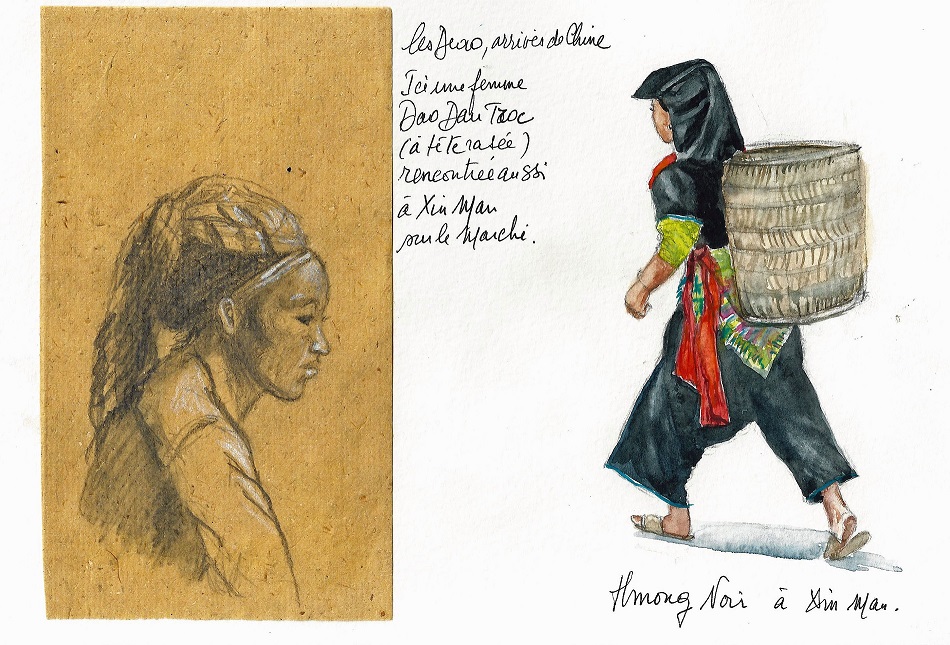 les Dzao, arrivés de Chine
Ici une femme
Dao Dan Tzoc
(à tête rasée)
rencontrée aussi
à Xin Man
sur le Marché.
Hmong Noir à Xin Man.